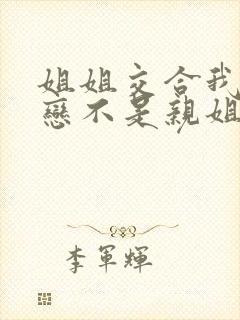 姐姐交合我
戀不是親姐
李軍輝